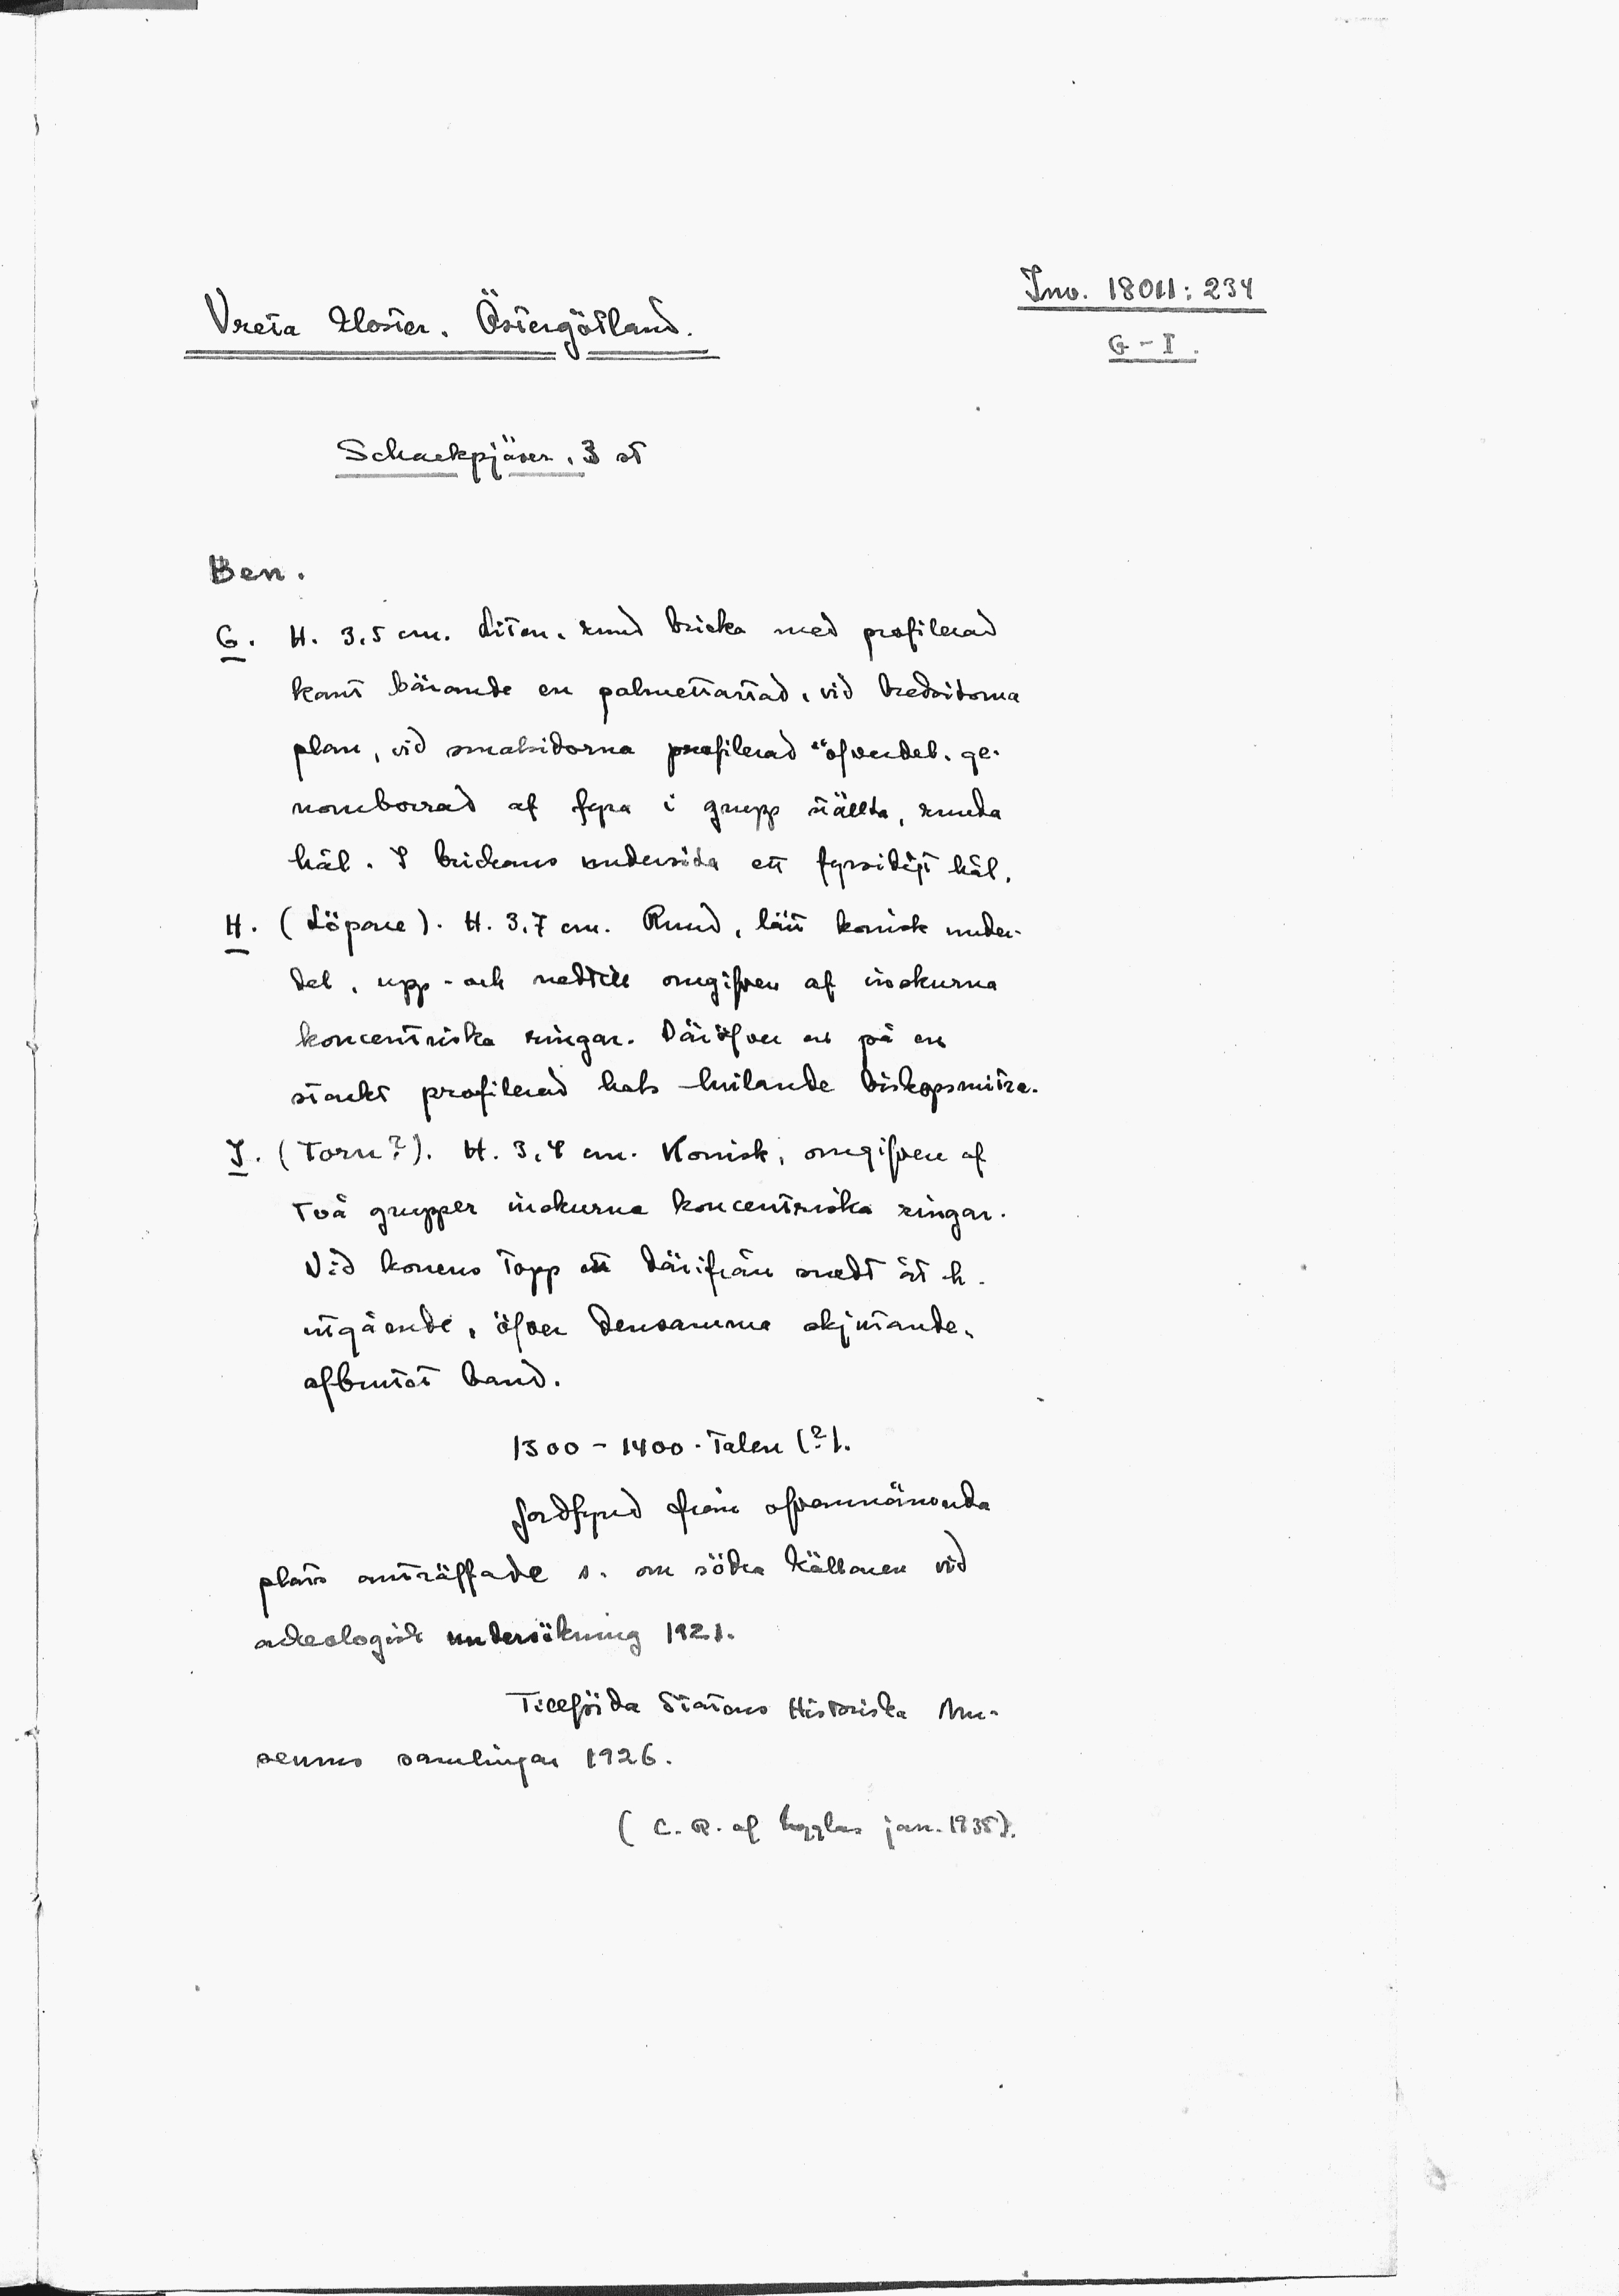 Inv. 18011:234
G - I.
Vreta Kloster. Östergötland.
Schackpjäser, 3 st
Ben.
G. H. 3,5 cm. Liten, rund bricka med profilerad
kant bärande en palmettartad, vid bredsidorna
plan, vid smalsidorna profilerad öfverdel, ge-
nomborrad af fyra i grupp ställda, runda
hål. I brickans undersida ett fyrsidigt hål.
H. (Löpare). H. 3,7 cm. Rund, lätt konisk under-
del, upp- och nedtill omgifven af inskurna
koncentriska ringar. Däröfver en på en
starkt profilerad hals hvilande biskopsmitra.
I. (Torn?). H. 3,4 cm. Konisk, omgifven af
två grupper inskurna koncentriska ringar.
Vid konens topp ett därifrån snedt åt h.
utgående, öfver densamma skjutande,
afbrutet band.
1300 - 1400-talen (?).
Jordfynd från ofvannämnda
plats anträffade s. om södra källaren vid
arkeologisk undersökning 1921.
Tillförda Statens Historiska Mu-
seums samlingar 1926.
(C. R. af Ugglas jan. 1935).